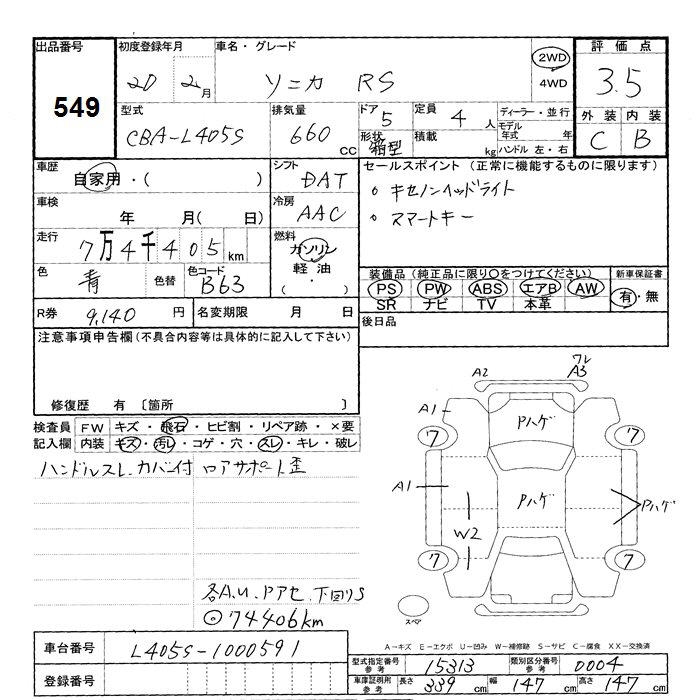 出品番号
549
初度登録年月
20 2月
車名・グレード
ソニカ RS
2WD
4WD
評価点
3.5
外装 内装
C B
型式
CBA-L405S
排気量
660 cc
ドア
5
形状
箱型
定員
4 人
積載
kg
ディーラー・並行
モデル年式 年
ハンドル 左・右
車歴
自家用・( )
シフト
DAT
車検
年 月( 日)
冷房
AAC
走行
7万4千405km
燃料
ガソリン
軽油
( ・ )
色
青
色替
色コード
B63
R券 9,140 円
名変期限 月 日
セールスポイント (正常に機能するものに限ります)
。キセノンヘッドライト
。スマートキー
装備品 (純正品に限り○をつけてください)
PS PW ABS エアB AW
SR ナビ TV 本革
新車保証書
有・無
後日品
注意事項申告欄 (不具合内容等は具体的に記入して下さい)
修復歴 有 〔箇所 〕
検査員 FW キズ・飛石・ヒビ割・リペア跡・×要
記入欄 内装 キズ・汚レ・コゲ・穴・スレ・キレ・破レ
ハンドルスレ.カバー付 ロアサポート歪
各A.U.Pアセ.下回りS
◎74406km
A2
ワレ
A3
A1
Pハゲ
7 7
A1
Pハゲ
Pハゲ
W2
7 7
スペア
A-キズ E-エクボ U-凹み W-補修跡 S-サビ C-腐食 XX-交換済
車台番号 L405S-1000591
登録番号
型式指定番号 参考 15313
類別区分番号 参考 0004
車庫証明用 参考 長さ 339cm 幅 147cm 高さ 147cm